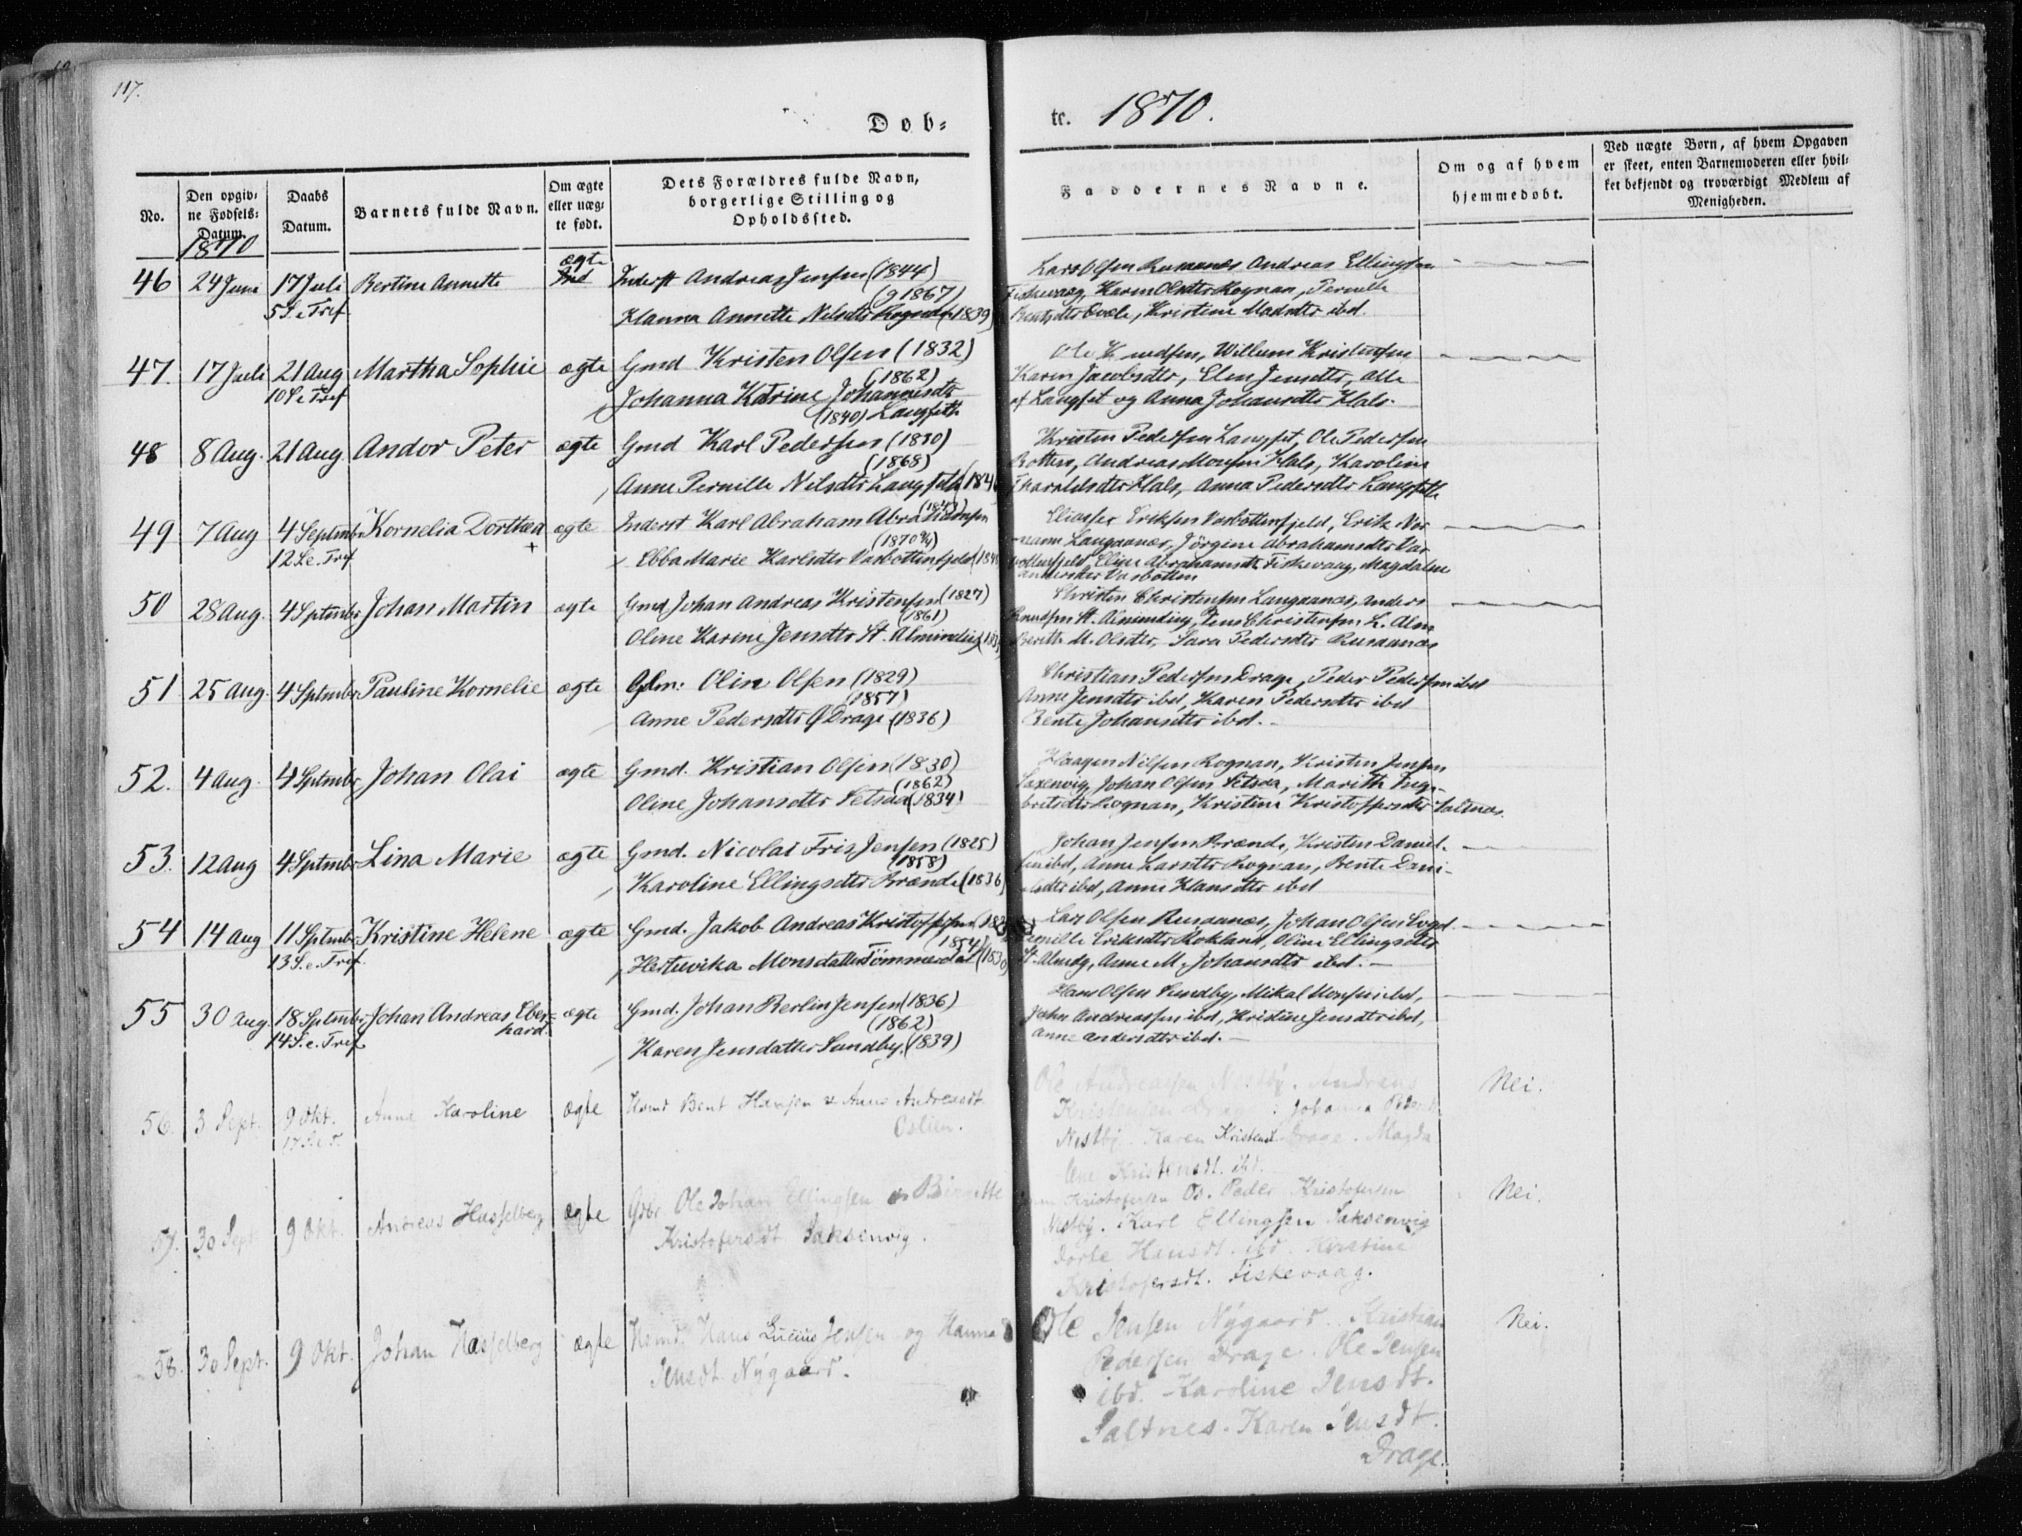 117.
Døb-
te. 1870.
No.
Den opgiv-
ne Fødsels-
Datum.
Daabs
Datum.
Barnets fulde Navn.
Om ægte
eller uæg-
te født.
Dets Forældres fulde Navn,
borgerlige Stilling og
Opholdssted.
Faddernes Navne.
Om og af hvem
hjemmedøbt.
Ved uægte Børn, af hvem Opgaven
er skeet, enten Barnemoderen eller hvil-
ket bekjendt og troværdigt Medlem af
Menigheden.
1870
46 24 Juni 17 Juli Bertine Annette ægte Inderst Andreas Jensen (1844)
5 S. e. Tref. (g 1867)
Hanna Annette Nilsdtr Rognan (1839)
Lars Olsen Rusaanes Andreas Ellingsen
Fiskevaag, Karen Olsdtr Rognan, Pernille
Bentsdtr Evele, Kristine Madsdtr ibd.
47. 17 Juli 21 Aug Martha Sophie ægte Gmd Kristen Olsen (1832)
10 S e Tref (1862)
Johanna Katrine Johannesdtr
(1840) Langseth
Ole Knudsen, Willum Kristensen
Karen Jacobsdtr, Elen Jensdtr, alle
af Langset og Anna Johansdtr Hals.
48 8 Aug. 21 Aug Andor Peter ægte Gmd Karl Pedersen (1830)
(1868)
Anne Pernille Nilsdtr Langseth (184
Kristen Pedersen Langset, Ole Pedersen
Botten, Andreas Monsen Hals, Karoline
Haraldsdtr Hals, Anna Pedersdtr Langseth
49 7 Aug 4 Septmbr Kornelia Dorthea ægte Inderst Karl Abraham Abrahamsen
12 S. e. Tref + (1870 )
Ebba Marie Karlsdtr Vasbottenfjeld (184
Eliasser Eriksen Vasbottenfjeld, Erik Nor
mann Langaanes, Jørgine Abrahamsdtr Vas
bottenfjeld, Eline Abrahamsdtr Fiskevaag, Magdalene
Andersdtr Vasbotten
50 28 Aug. 4 Septmbr Johan Martin ægte Gmd Johan Andreas Kristensen (1827)
(1861)
Oline Karine Jensdtr St. Alminding (183
Christen Christensen Langaanes, Anders
Knudsen St. Alminding, Jens Christensen L. Alm
Berith M. Olsdtr, Sara Pedersdtr Rusaanes
51 25 Aug. 4 Sptmbr Pauline Kornelie ægte Gdm: Olin Olsen (1829)
(1857)
Anne Pedersdtr Drage (1836)
Christian Pedersen Drage, Peder Pedersen ibd
Anne Jensdtr ibd, Karen Pedersdtr ibd
Bente Johansdtr ibd.
52. 4 Aug. 4 Sptmbr Johan Olai ægte Gmd. Kristian Olsen (1830)
(1862)
Oline Johansdtr Setsaa (1834)
Haagen Nilsen Rognan, Kristen Jensen
Saxenvig, Johan Olsen Setsaa, Marith Inge-
bretsdtr Rognan, Kristine Kristoffersdtr Saltnes.
53. 12 Aug 4 Sptmbr Lina Marie ægte Gmd. Nicolai Fris Jensen (1825)
(1858)
Karoline Ellingsdtr Brænde (1836
Johan Jensen Brænde, Kristen Daniel-
sen ibd, Anne Larsdtr Rognan, Bente Dani-
elsdtr ibd, Anne Hansdtr ibd
54 14 Aug 11 Sptmbr. Kristine Helene ægte Gmd. Jakob Andreas Kristoffersen (18
13 S. e. Tref. (1854)
Hertevika Monsdatter Tømmerdal (1830)
Lars Olsen Rusaanes, Johan Olsen Evgd.
Pernille Eriksdtr Rokland, Oline Ellingsdtr
St. Almdg, Anne M. Johansdtr ibd. —
55 30 Aug. 18 Sptmbr. Johan Andreas Eber- ægte Gmd. Johan Berlin Jensen (1836)
14 S. e. Tref hard. (1862)
Karen Jensdatter Sundby. (1839)
Hans Olsen Sundby, Mikal Monsen ibd,
John Andreassen ibd, Kristine Jensdtr ibd,
Anne Andersdtr ibd. —
56. 3 Sept. 9 Okt. Anna Karoline ægte Hsmd Bent Hansen & Anne Andreasdt.
17 S e T. Oslien.
Ole Andreassen Nestby. Andreas Nei.
Johanna
Nestby. Karen Kristensd. Drage. Magda
lene Kristensdt. ibd.
57. 30 Sept 9 Okt. Andreas Hasselberg ægte Gdbr. Ole Johan Ellingsen & Birgitte
Kristofersdt Saksenvig.
Kristofersen Os. Peder Kristofersen Nei.
Nestby. Karl Ellingsen Saksenvig
Dorte Hansdt. ibd. Kirstine
Kristofersdt. Fiskevaag.
58. 30 Sept. 9 Okt. Johan Hasselberg ægte Hsmd. Hans Lucius Jensen og Hanna
Jensdt. Nygaard.
Ole Jensen Nygaard. Kristian Nei.
Pedersen Drage. Ole Jensen
ibd. Karoline Jensdt.
Saltnes. Karen Jensdt.
Drage.